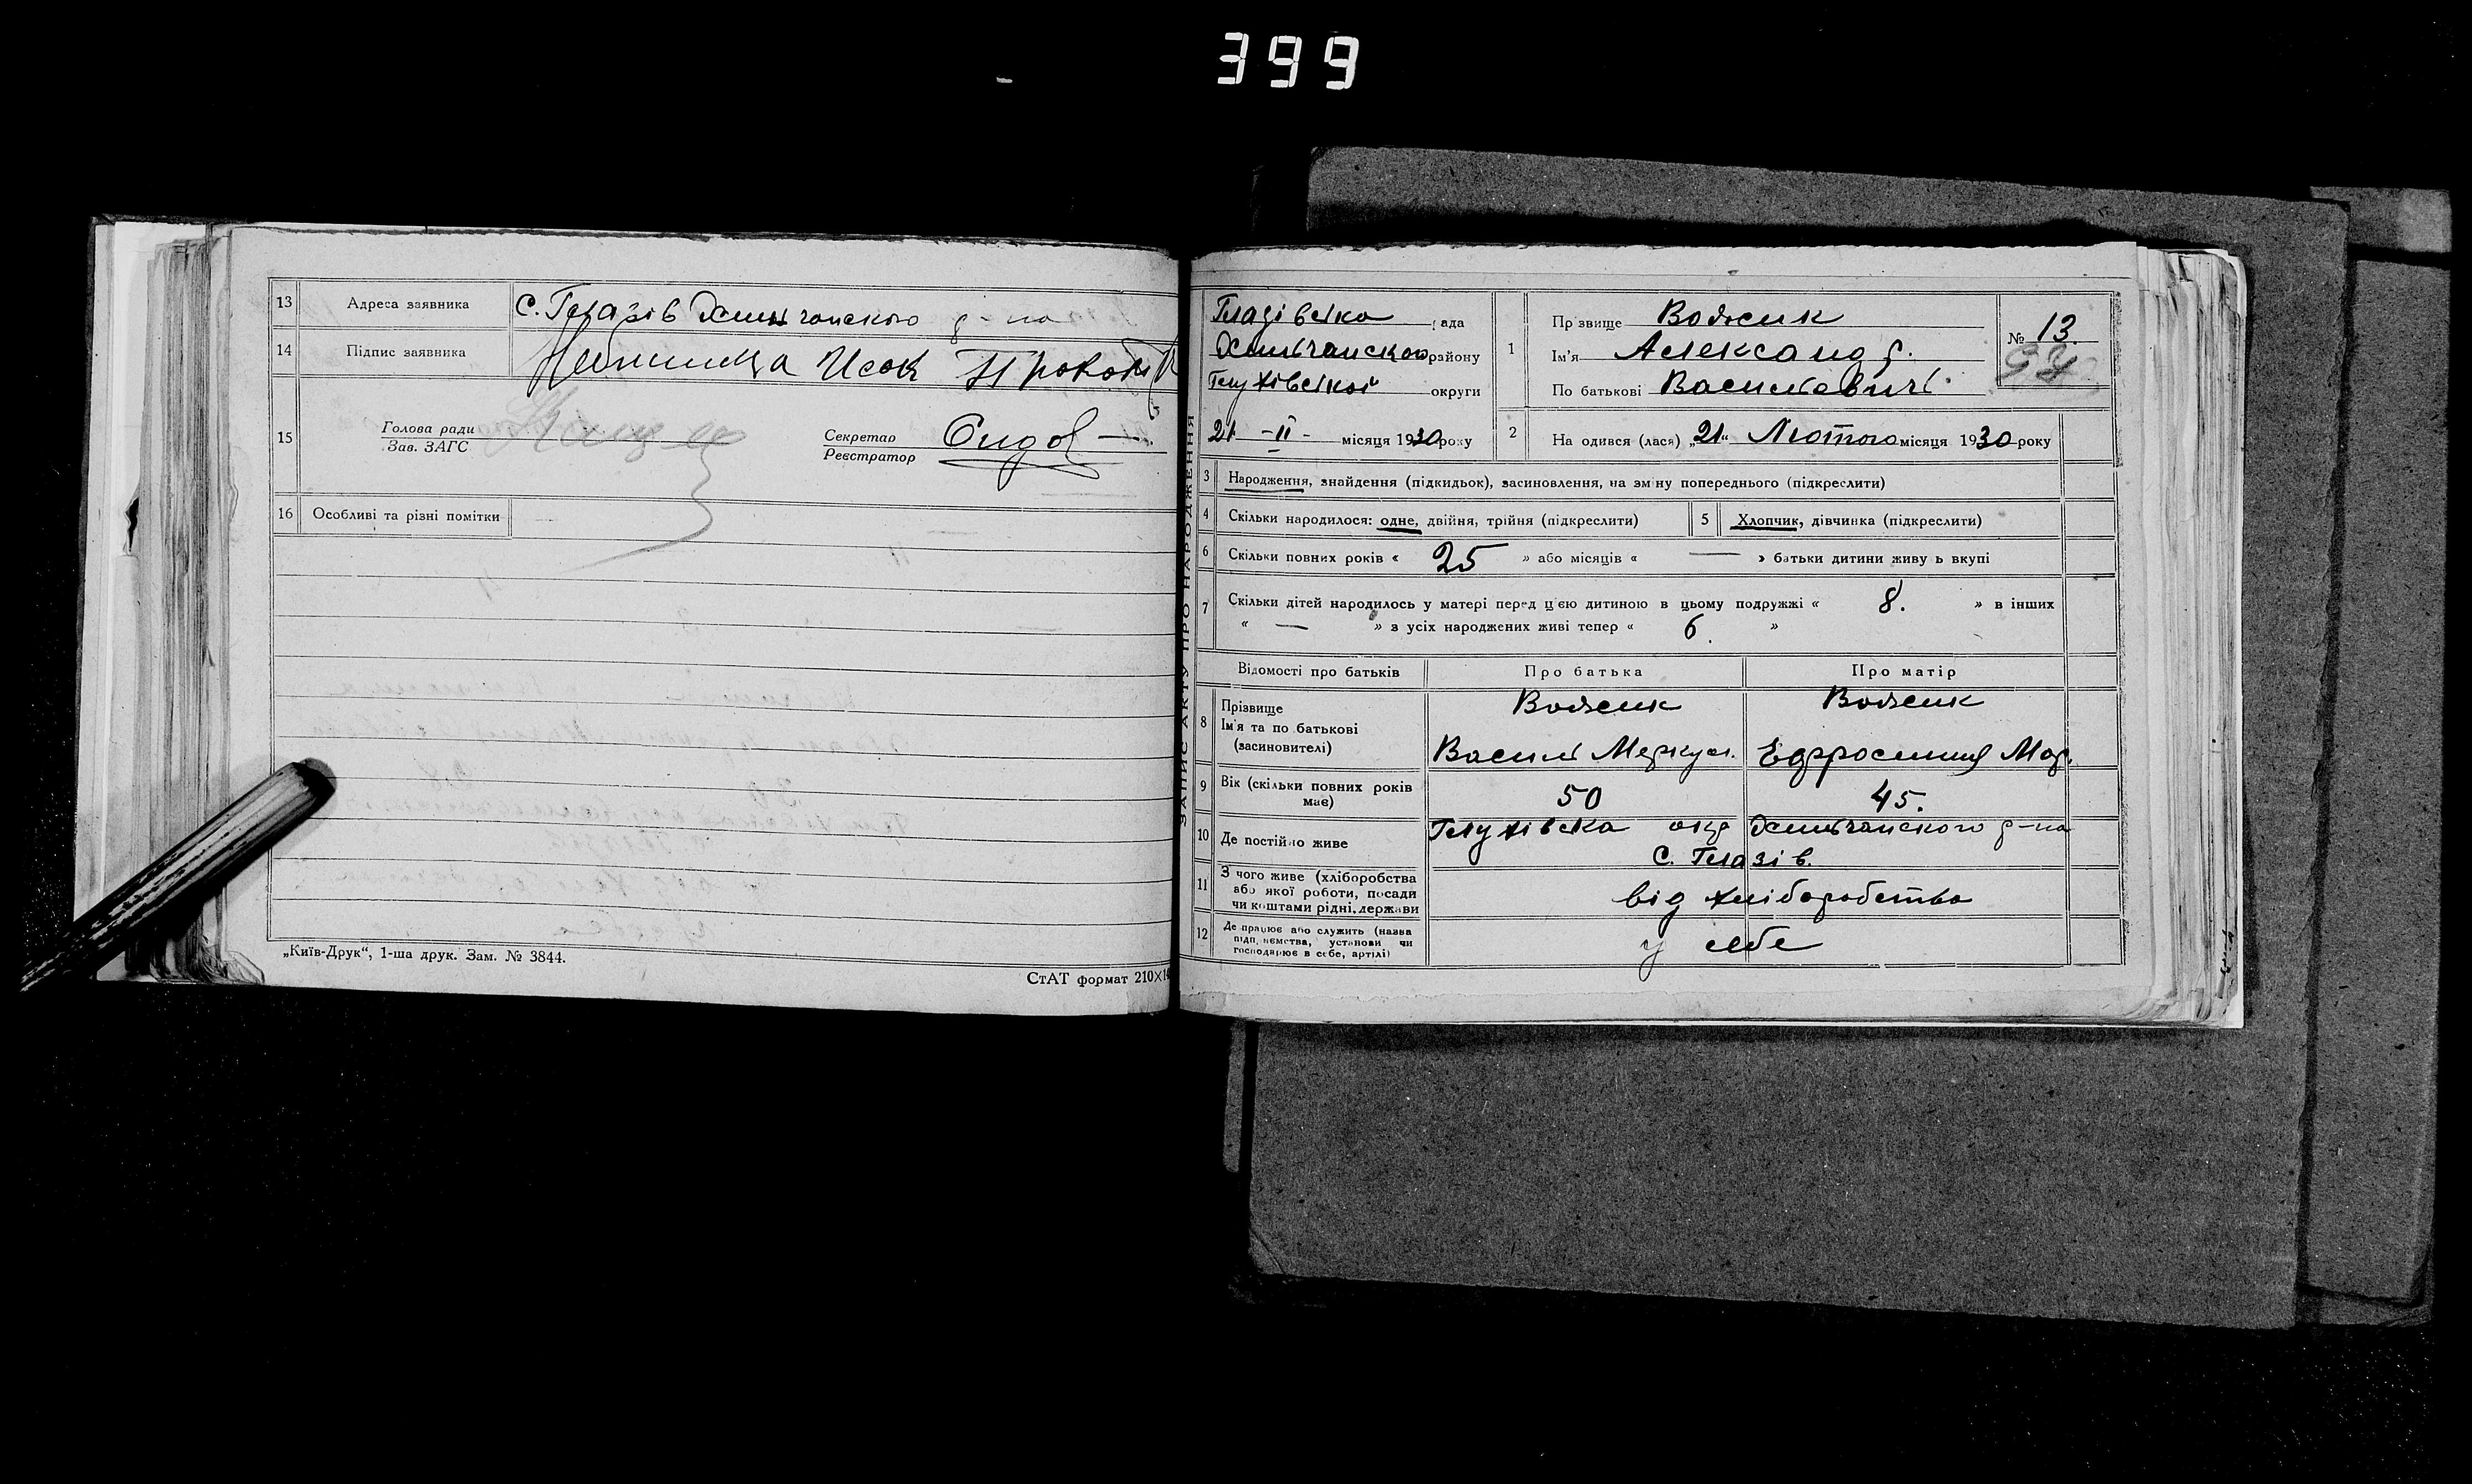 399
13 Адреса заявника С. Глазів Хильчанского р-на
14 Підпис заявника Исак Прокоп
15 Голова ради
Зав. ЗАГС
Секретар
Реєстратор
16 Особливі та різні помітки
„Київ-Друк“, 1-ша друк. Зам. № 3844.
СтАТ формат 210×14
ЗАПИС АКТУ ПРО НАРОДЖЕННЯ
Глазівска рада
Хильчанского району
Глухівської округи
21 - II - місяця 1930 року
1 Прізвище Вожик
Ім'я Александр.
По батькові Васильевичь.
№ 13.
2 На одився (лася) „21“ Лютого місяця 1930 року
3 Народження, знайдення (підкидьок), засиновлення, на зміну попереднього (підкреслити)
4 Скільки народилося: одне, двійня, трійня (підкреслити) 5 Хлопчик, дівчинка (підкреслити)
6 Скільки повних років « 25 » або місяців « — » батьки дитини живу ь вкупі
7 Скільки дітей народилось у матері перед цією дитиною в цьому подружжі « 8. » в інших
« — » з усіх народжених живі тепер « 6. »
Відомості про батьків Про батька Про матір
8 Прізвище Вожик Вожик
Ім'я та по батькові
(засиновителі) Василь Меркул. Ефросиния Мар.
9 Вік (скільки повних років має) 50 45.
10 Де постійно живе Глухівска окр Хильчанского р-на
С. Глазів.
11 З чого живе (хліборобства
або якої роботи, посади
чи коштами рідні, держави від хліборобства
12 Де працює або служить (назва
підприємства, установи чи
господарює в себе, артілі) у себе